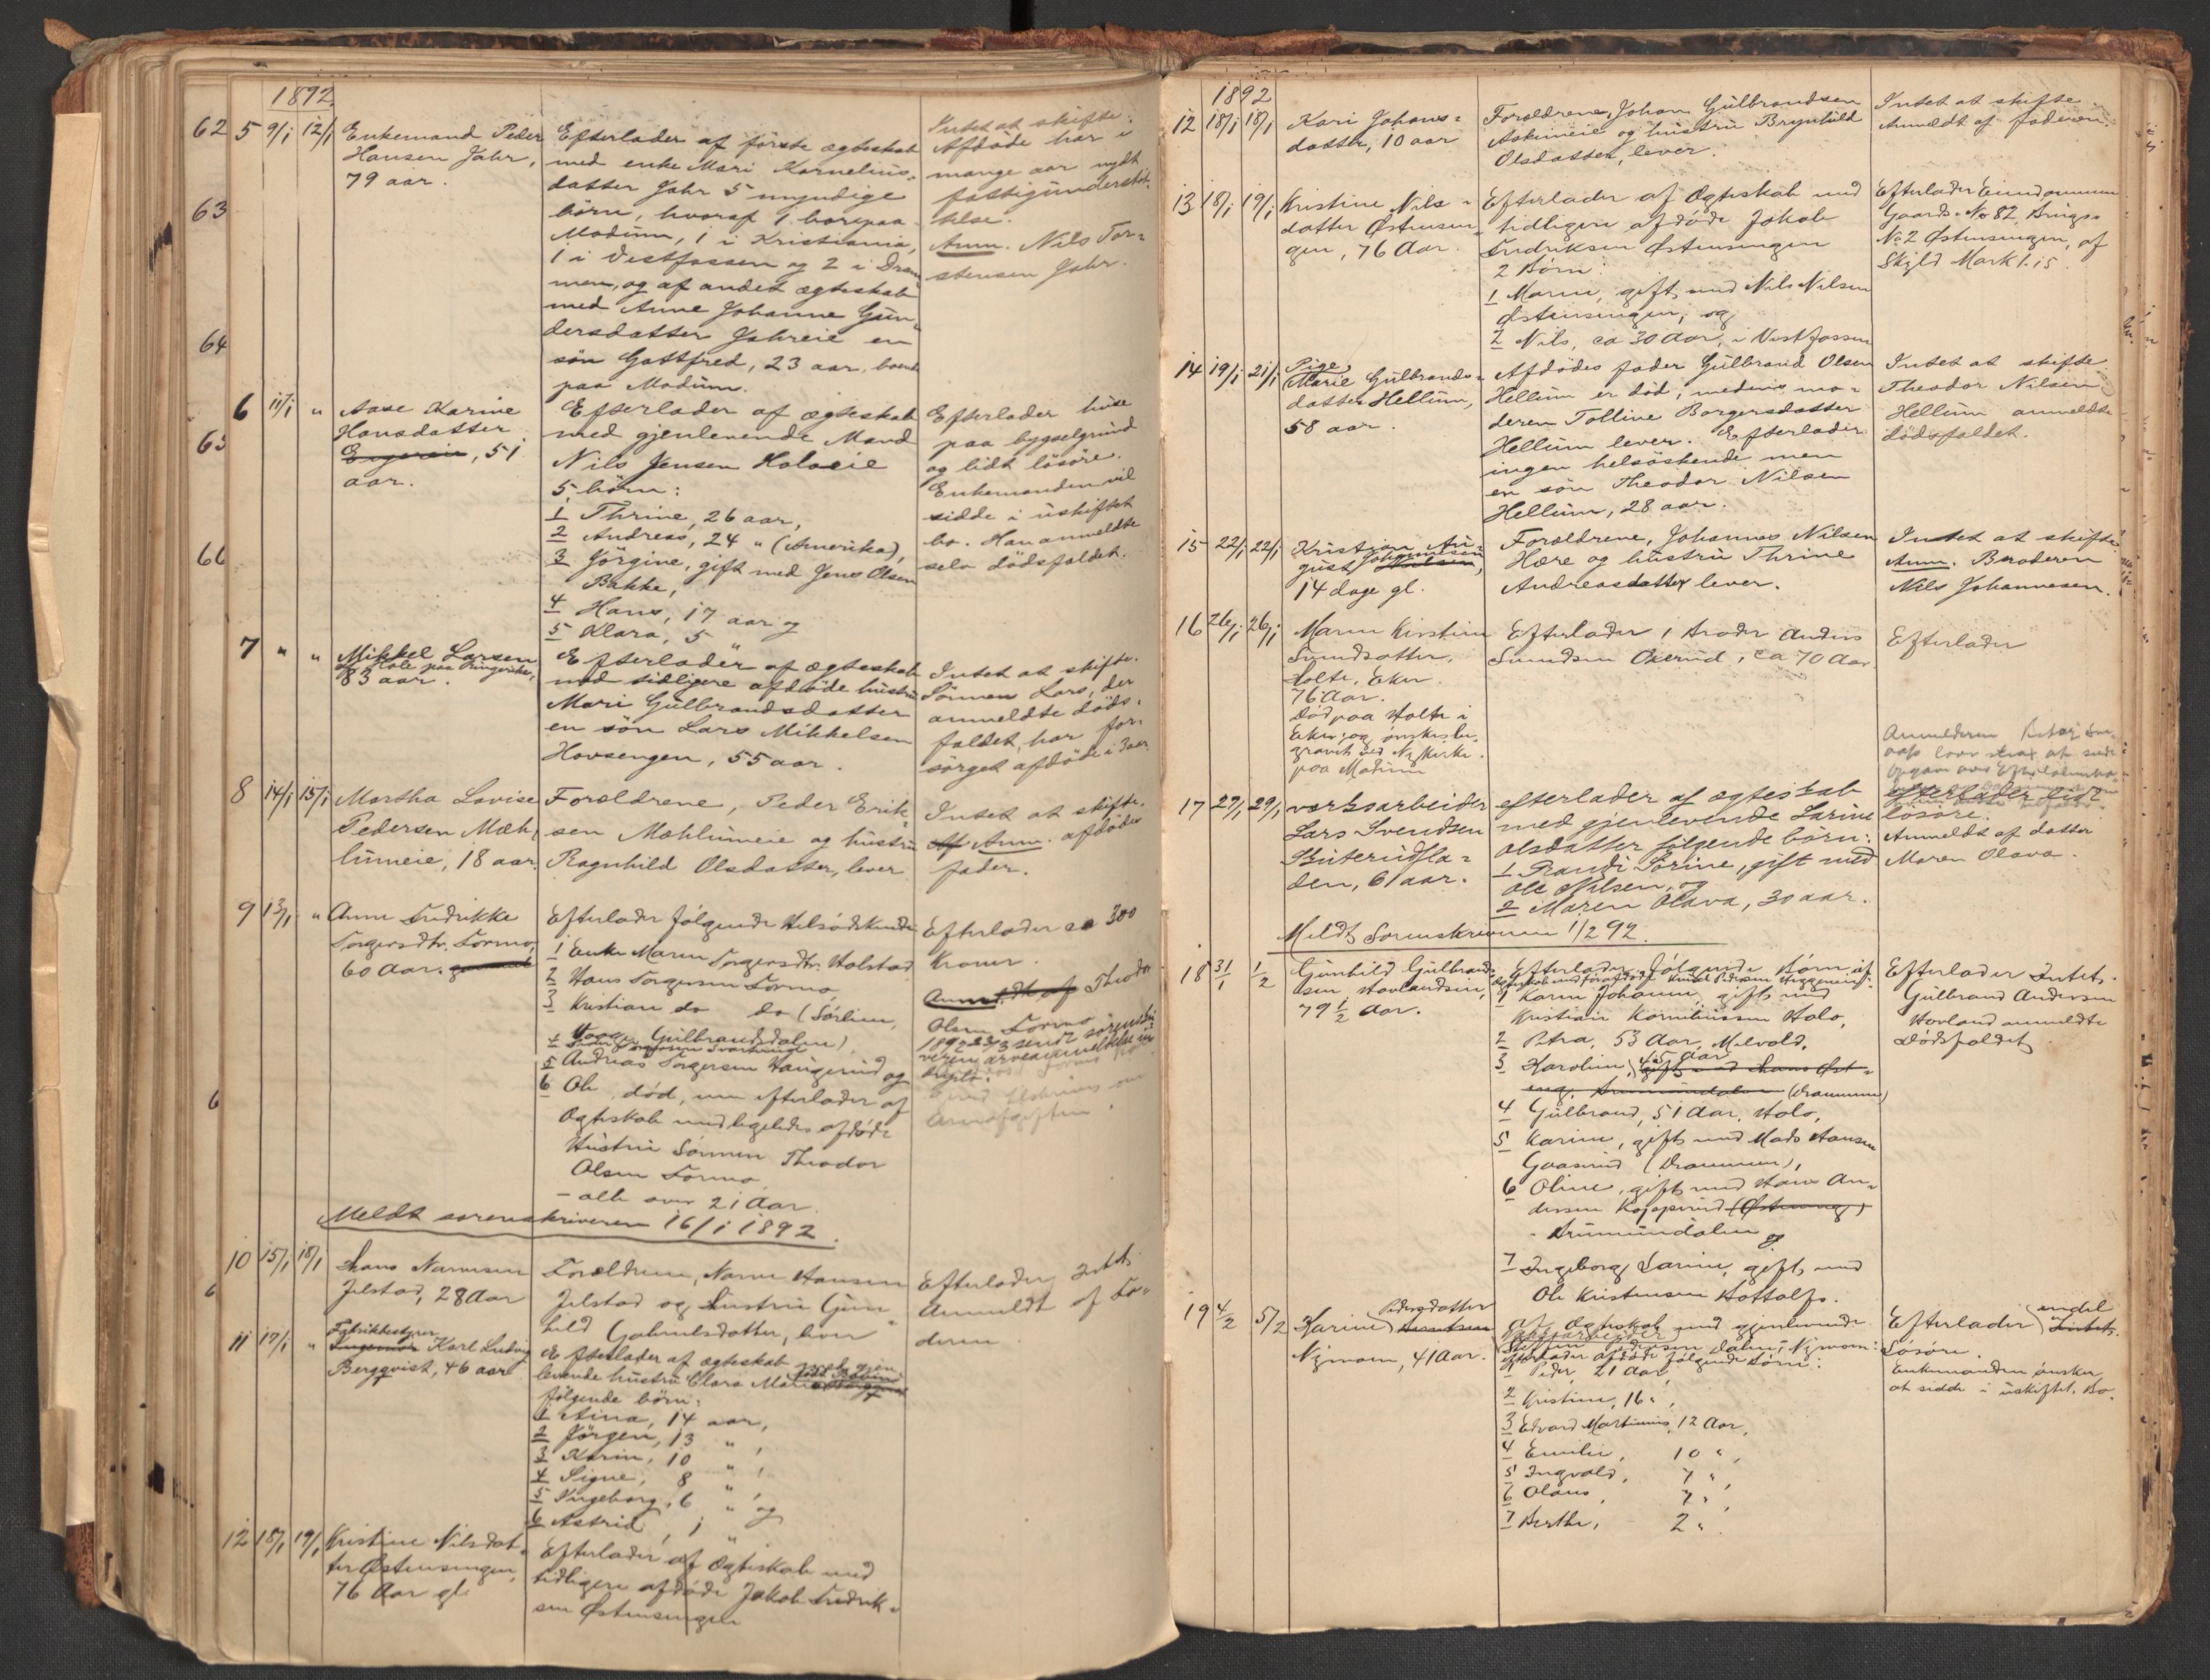 1892
62
63
64
65
66
6
6
5 9/1 12/1
Enkemand Peder
Hansen Jahr,
79 aar.
Efterlader af første ægteskab
med enke Mari Kornelius-
datter Jahr 5 myndige
børn, hvoraf 1 bor paa
Modum, 1 i Kristiania,
1 i Vestfossen og 2 i Dram
men, og af andet ægteskab
med Anne Johanne Gun-
dersdatter Jahreie en
søn Gottfred, 23 aar, boende
paa Modum.
Intet at skifte.
Afdøde har i
mange aar nydt
fattigunderstøt-
telse.
Anm. Nils Tor-
stensen Jahr.
6 11/1 "
Aase Karine
Hansdatter
51
aar.
Efterlader af ægteskab
med gjenlevende Mand
Nils Jensen Holoeie
5 børn:
1 Thrine, 26 aar,
2 Andreas, 24 " (Amerika),
3 Jørgine, gift med Jens Olsen
Bakke,
4 Hans, 17 aar og
5 Klara, 5 "
Efterlader huse
paa bygselgrund
og lidt løsøre.
Enkemanden vil
sidde i uskiftet
bo. Han anmeldte
selv dødsfaldet.
7 " "
Mikkel Larsen
af Hole paa Ringerike,
83 aar.
Efterlader af ægteskab
med tidligere afdøde hustru
Mari Gulbrandsdatter
en søn Lars Mikkelsen
Hovsengen, 55 aar.
Intet at skifte.
Sønnen Lars, der
anmeldte døds-
faldet, har for-
sørget afdøde i 3 aar.
8 14/1 15/1
Martha Lovise
Pedersen Mæh-
lumeie, 18 aar.
Forældrene, Peder Erik-
sen Mæhlumeie og hustru
Ragnhild Olsdatter, lever
Intet at skifte.
Af Anm. afdødes
fader.
9 13/1 "
Anne Fredrikke
Torgersdtr. Formo,
60 Aar.
Efterlader følgende Helsødskende
1 Enke Maren Torgersdtr. Holstad
2 Hans Torgersen Formo
3 Kristian do do (Sørlien,
Vaage Gulbrandsdalen)
4
5 Andreas Torgersen Haugerud og
6 Ole, død, men efterlader af
Ægteskab med ligeledes afdøde
Hustru Sønnen Theodor
Olsen Formo
- alle over 21 Aar.
Efterlader ca 300
Kroner.
Anmeldt af Theodor
Olsen Formo
1892 23/3 sendt sørenskri
veren arveanmeldelse
Arveafgiften.
Meldt sorenskriveren 16/1 1892.
10 15/1 18/1
Hans Narvesen
Jelstad, 28 Aar
Forældrene, Narve Hansen
Jelstad og Hustru Gun-
hild Gabrielsdatter, lever
Efterlader Intet.
Anmeldt af Fa-
deren.
11 17/1 "
Fabrikbestyrer
Ingeniør Karl Ludvig
Bergqvist, 46 aar
Efterlader af ægteskab med gjen-
levende hustru Clara Marie
følgende børn:
1 Aina, 14 aar,
2 Jörgen, 13 " ,
3 Karin, 10 " ,
4 Signe, 8 " ,
5 Ingeborg, 6 " og
6 Astrid, 1 "
12 18/1 19/1
Kristine Nilsdat-
ter Østensengen,
76 Aar gl.
Efterlader af Ægteskab med
tidligere afdøde Jakob Fredrik-
sen Østensengen
1892
12 18/1 18/1
Kari Johans-
datter, 10 aar
Forældrene, Johan Gulbrandsen
Askimeie og hustru Brynhild
Olsdatter, lever.
Intet at skifte.
Anmeldt af faderen.
13 18/1 19/1
Kristine Nils-
datter Østensen-
gen, 76 Aar.
Efterlader af Ægteskab med
tidligere afdøde Jakob
Fredriksen Østensengen
2 Børn:
1 Maren, gift med Nils Nilsen
Østensengen, og
2 Nils, ca 30 Aar, i Vestfossen
Efterlader Eiendommen
Gaards-No 82 Brugs-
No 2 Østensengen, af
Skyld Mark 1.15.
14 19/1 21/1
Pige
Marie Gulbrands-
datter Hellum,
58 aar.
Afdødes fader Gulbrand Olsen
Hellum er død, medens mo-
deren Tolline Borgersdatter
Hellum lever. Efterlader
ingen helsøskende men
en søn Theodor Nilsen
Hellum, 28 aar.
Intet at skifte
Theodor Nilsen
Hellum anmeldte
dødsfaldet.
15 22/1 22/1
Kristian Au-
gust Johannesen
Nilsen,
14 dage gl.
Forældrene, Johannes Nilsen
Hære og hustru Thrine
Andreasdatter lever.
Intet at skifte.
Anm. Broderen
Nils Johannesen.
16 26/1 26/1
Maren Kirstine
Svendsdatter,
Holte, Eker.
76 Aar.
Død paa Holte i
Eker, og ønskes be-
gravet ved Ny Kirke
paa Modum
Efterlader 1 Broder Anders
Svendsen Oserud, ca 70 Aar
Efterlader
Anmelderen
17 29/1 29/1
værksarbeider
Lars Svendsen
Skuterudfla-
den, 61 aar.
efterlader af ægteskab
med gjenlevende Larine
olsdatter følgende børn:
1 Randi Sørine, gift med
Ole Nilsen, og
2 Maren Olava, 30 aar.
efterlader lidt
løsøre.
Anmeldt af datter
Maren Olava.
Meldt Sorenskriveren 1/2 92.
18 31/1 1/2
Gunhild Gulbrand-
sen Hovlandseie,
79 1/2 Aar.
Efterlader følgende Børn af
1 Karen Johanne, gift med
Kristian Korneliussen Holo,
2 Petra, 53 Aar, Milvold,
3 Karoline, 45 Aar
gift med Hans Øst-
eng, Brumunddalen (Drammen)
4 Gulbrand, 51 Aar, Holo,
5 Karine, gift med Mads Hansen
Gaaserud (Drammen),
6 Oline, gift med Hans An-
dersen (Østeng)
- Brumunddalen og
7 Ingeborg Larine, gift med
Ole Kristensen Kottolfs.
Efterlader Intet.
Gulbrand Andersen
Hovland anmeldte
Dødsfaldet
19 4/2 5/2
Karine Pedersdatter
Nymoen, 41 Aar.
Af Ægteskab med gjenlevende
Værksarbeider
Steffen Pedersen Dalen, Nymoen:
efterlader afdøde følgende Børn:
1 Peder, 21 Aar,
2 Kristine, 16 " ,
3 Edvard Martinius, 12 Aar,
4 Emilie, 10 " ,
5 Ingvald, 7 " ,
6 Olaus, 7 " ,
7 Berthe, 2 " .
Efterlader endel
Intet.
Løsøre.
Enkemanden ønsker
at sidde i uskiftet Bo.